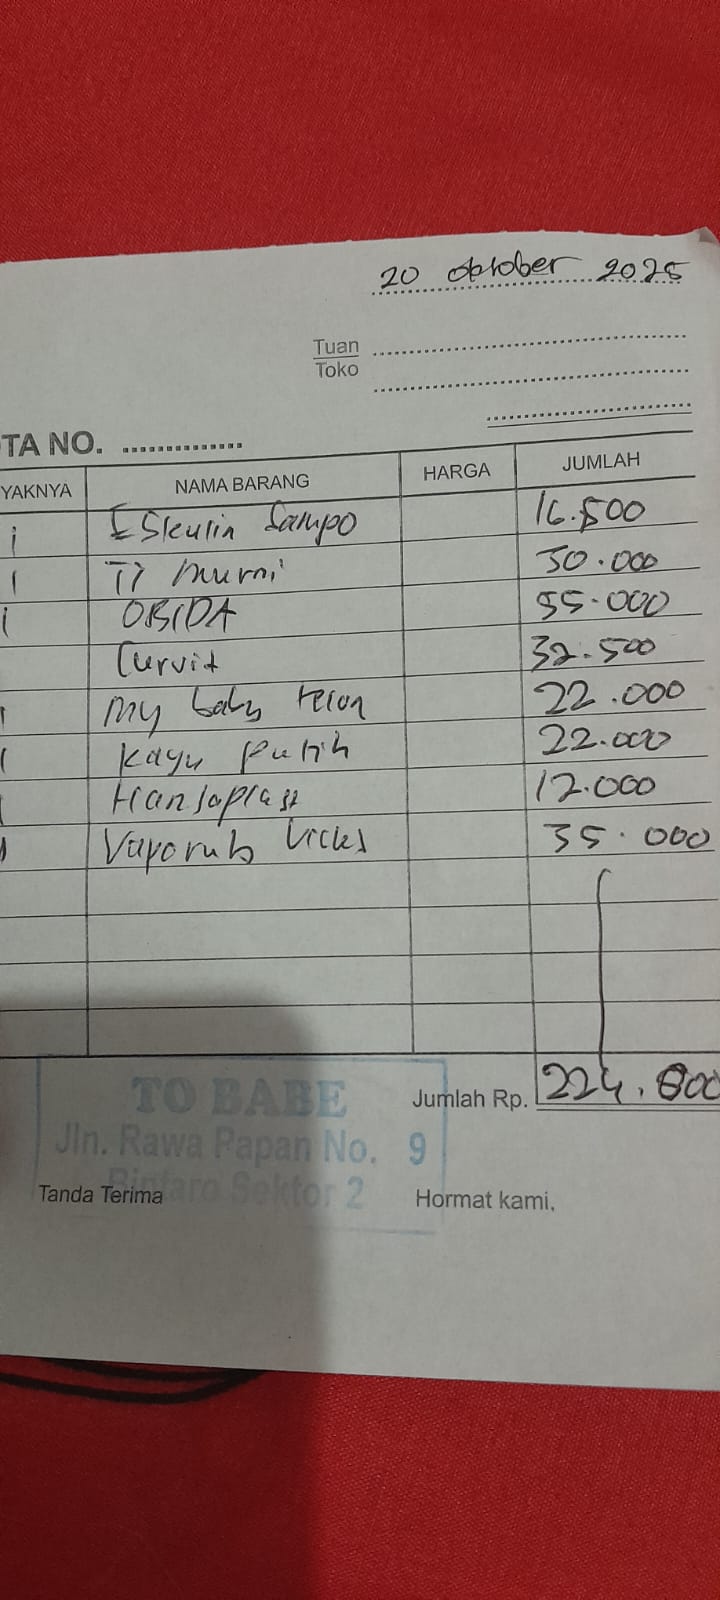 20 Oktober 2025
Tuan
Toko
TA NO.
YAKNYA NAMA BARANG HARGA JUMLAH
1 Eskulin Sampo 16.500
1 TJ Murni 30.000
1 OBIDA 55.000
Curvit 32.500
1 My baby telon 22.000
1 Kayu putih 22.000
1 Hansaplast 12.000
1 Vaporub Vicks 35.000
Jumlah Rp. 224.800
TO BABE
Jln. Rawa Papan No. 9
Bintaro Sektor 2
Tanda Terima Hormat kami,